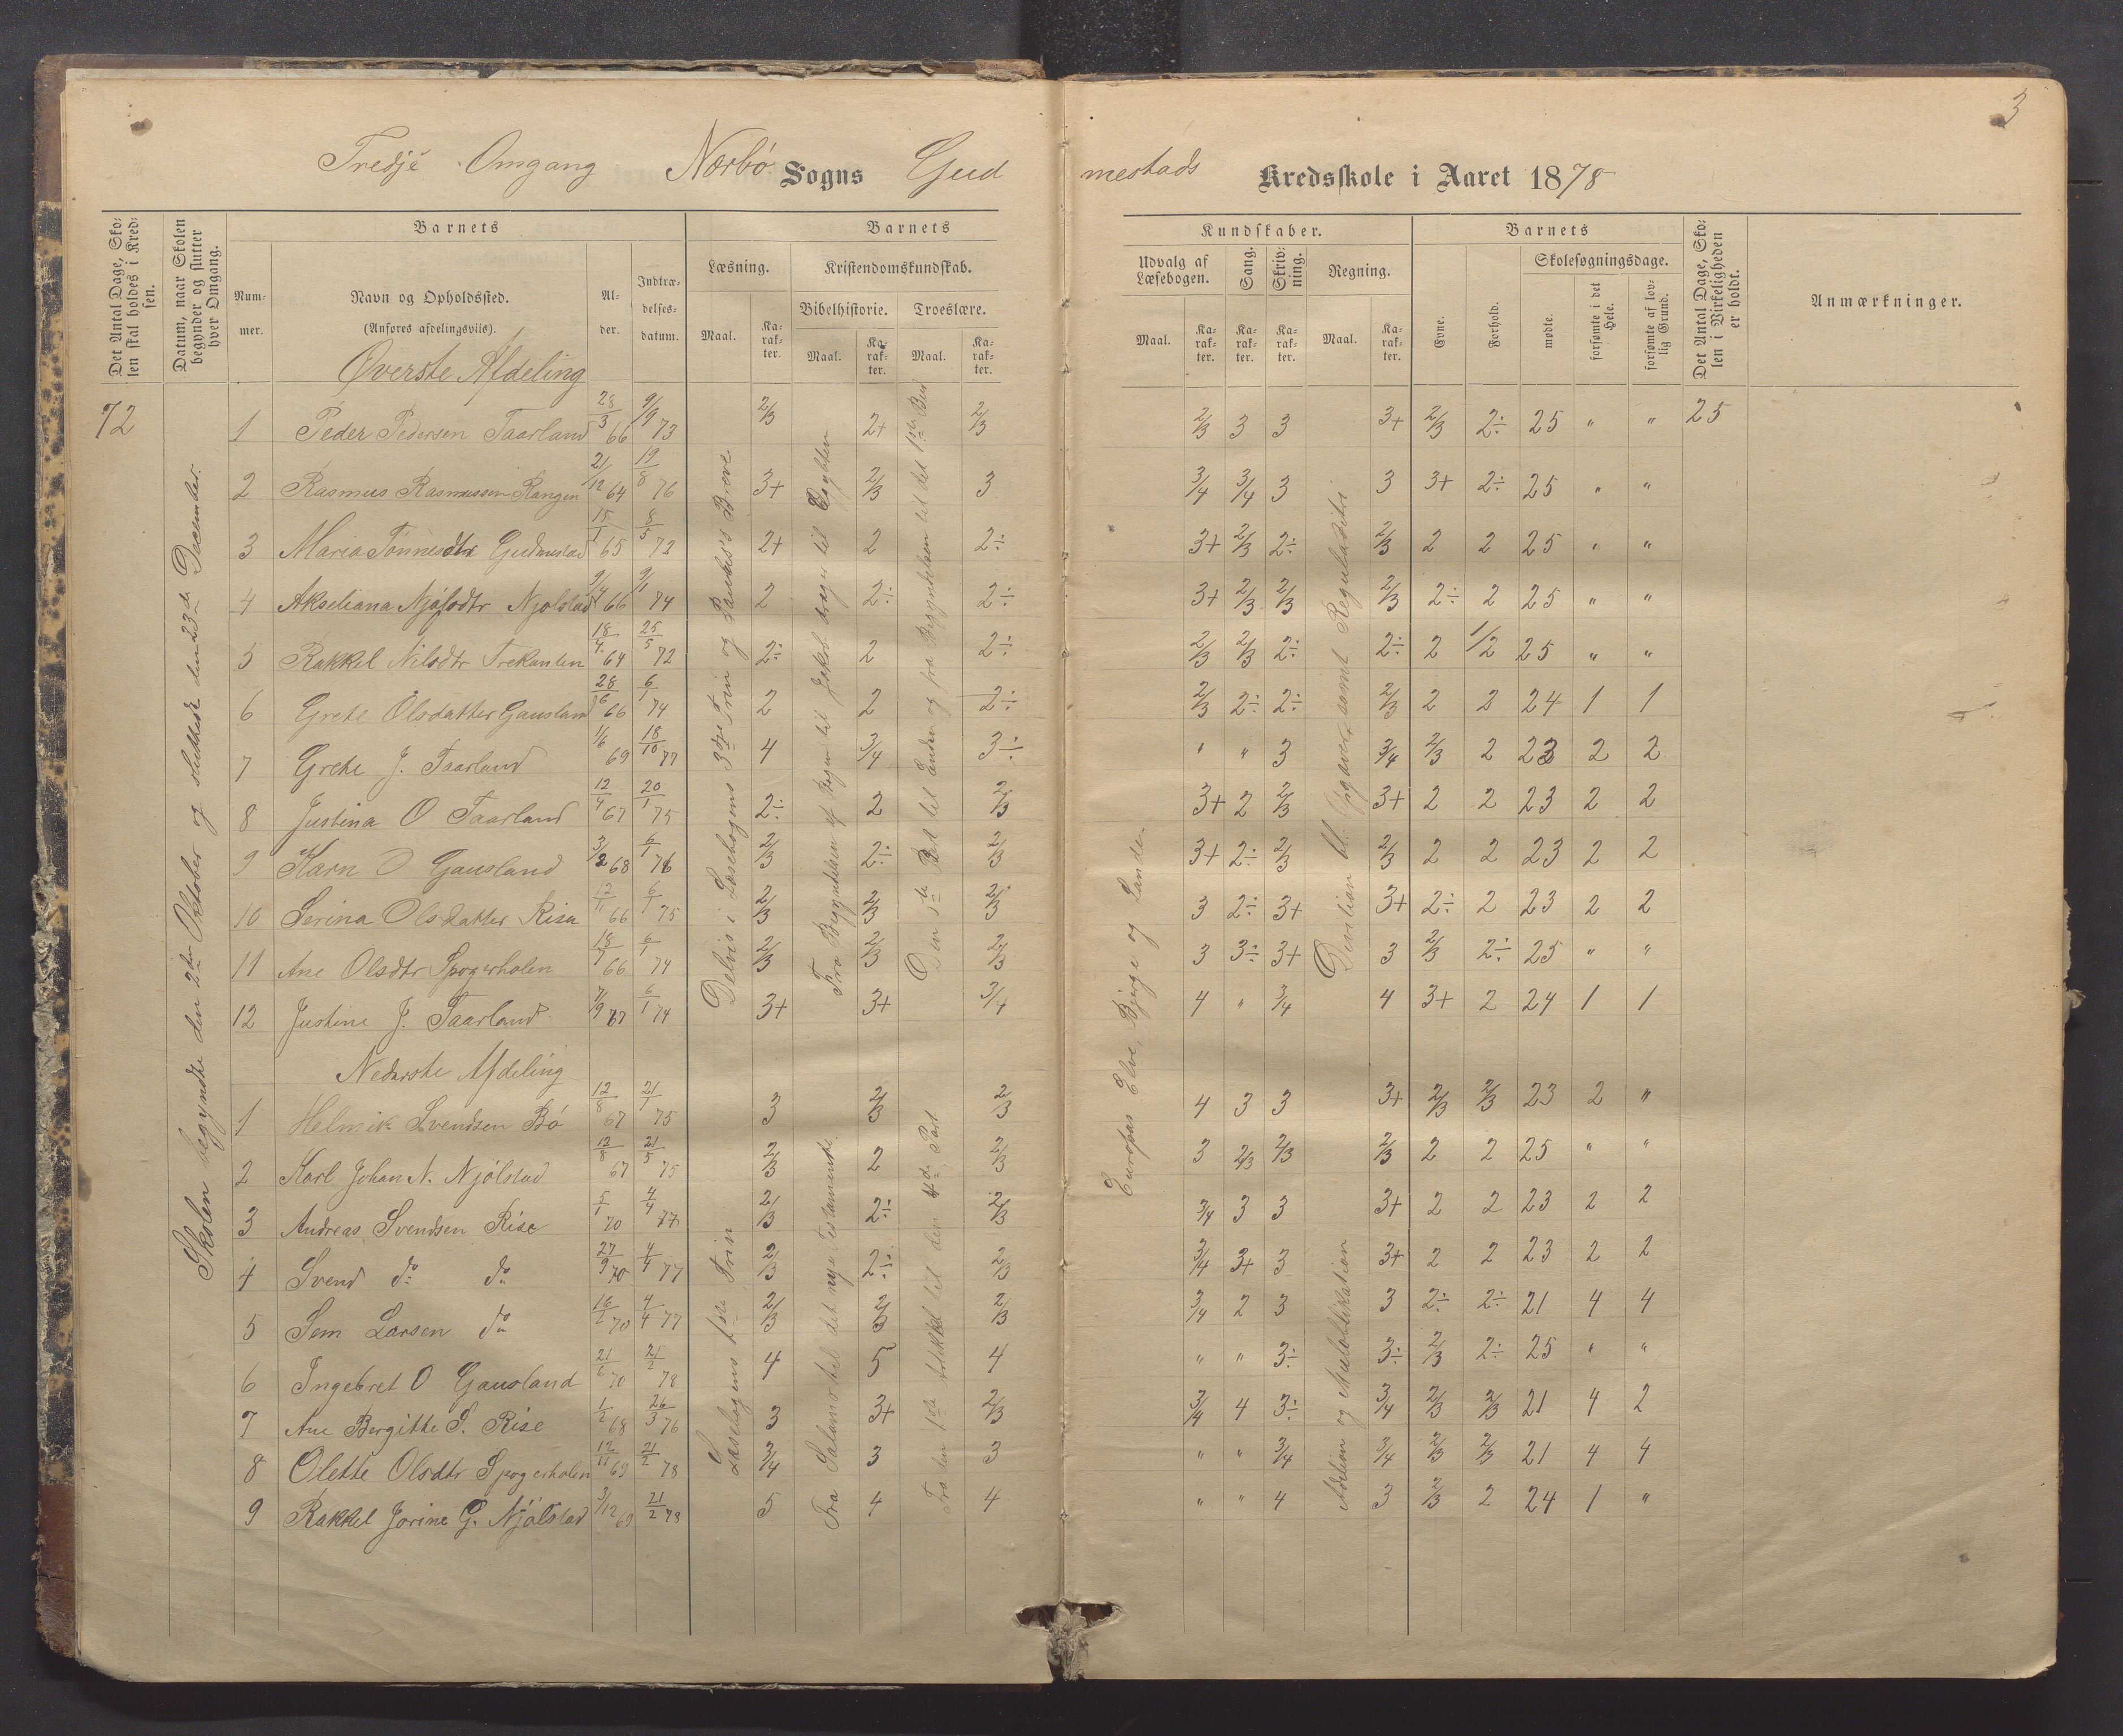 3
Tredje Omgang Nærbø Sogns Gudmestads Kredsskole i Aaret 1878
Det Antal Dage, Skolen skal holdes i Kredsen.
Datum, naar Skolen begynder og slutter hver Omgang.
Barnets
Nummer.
Navn og Opholdssted.
(Anføres afdelingsviis).
Alder.
Indtrædelsesdatum.
Barnets Kundskaber.
Læsning.
Maal.
Karakter.
Kristendomskundskab.
Bibelhistorie.
Maal.
Karakter.
Troeslære.
Maal.
Karakter.
Udvalg af Læsebogen.
Maal.
Karakter.
Sang.
Karakter.
Skrivning.
Karakter.
Regning.
Maal.
Karakter.
Barnets
Evne.
Forhold.
Skolesøgningsdage.
mødte.
forsømte i det Hele.
forsømte af lovlig Grund.
Det Antal Dage, Skolen i Virkeligheden er holdt.
Anmærkninger.
72
Skolen begyndte den 2den Oktober og sluttede den 23de December.
Øverste Afdeling
1 Peder Pedersen Taarland 28/3 66 9/9 73 2/3 2+ 2/3 2/3 3 3 3+ 2/3 2÷ 25 " " 25
2 Rasmus Rasmussen Rangen 21/12 64 19/8 76 3+ 2/3 3 3/4 3/4 3 3 3+ 2÷ 25 " "
3 Maria Tønnesdtr Gudmestad 15/1 65 8/5 72 2+ 2 2÷ 3+ 2/3 2÷ 2/3 2 2 25 " "
4 Akseliana Njølsdtr Njølstad 9/4 66 9/1 74 2 2÷ 2÷ 3+ 2/3 2/3 2/3 2÷ 2 25 " "
5 Rakkel Nilsdtr Trekanten 18/4 64 25/5 72 2÷ 2 2÷ 2/3 2/3 2÷ 2÷ 2 1/2 25 " "
6 Grete Olsdatter Gausland 28/6 66 6/1 74 2 2 2÷ 2/3 2÷ 2÷ 2/3 2 2 24 1 1
7 Grete J. Taarland 1/6 69 18/10 77 4 3/4 3÷ " " 3 3/4 2/3 2 23 2 2
8 Justina O Taarland 12/4 67 20/1 75 2÷ 2 2/3 3+ 2 2/3 3+ 2 2 23 2 2
9 Karn O Gausland 3/2 68 6/1 76 2/3 2÷ 2/3 3+ 2÷ 2/3 2/3 2 2 23 2 2
10 Serina Olsdatter Risa 12/11 66 6/1 75 2/3 2/3 2/3 3 2÷ 3+ 3+ 2÷ 2 23 2 2
11 Ane Olsdtr Spogerholen 18/7 66 6/1 74 2/3 2/3 2/3 3 3÷ 3+ 3 2/3 2÷ 25 " "
12 Justine J. Taarland 7/9 67 6/1 74 3+ 3+ 3/4 4 " 3/4 4 3+ 2 24 1 1
Delvis i Læsebogens 3dje Trin og Paulus's Breve
Fra Begyndelsen af Bogen til Jakob drager til Egypten
Europas Elve, Bjerge og Lande
Nederste Afdeling
1 Helmik Svendsen Bø 12/8 67 21/1 75 3 2/3 2/3 4 3 3 3+ 2/3 2/3 23 2 "
2 Karl Johan N. Njølstad 12/8 67 21/5 75 2/3 2 2/3 3 2/3 2/3 2/3 2 2 25 " "
3 Andreas Svendsen Rise 5/1 70 4/4 77 2/3 2÷ 2/3 3/4 3 3 3+ 2 2 23 2 2
4 Svend do do 27/9 70 4/4 77 2/3 2÷ 2/3 3/4 3+ 3 3+ 2 2 23 2 2
5 Sem Larsen do 16/2 70 4/4 77 2/3 2/3 2/3 3/4 2 3 3 2÷ 2÷ 21 4 4
6 Ingebret O Gausland 21/6 70 21/2 78 4 5 4 " " 3÷ 3÷ 2/3 2÷ 25 " "
7 Ane Bergitte S. Rise 1/2 68 26/3 76 3 3+ 2/3 3/4 4 3÷ 3/4 2/3 2/3 21 4 2
8 Olette Olsdtr Spogerholen 12/11 69 21/2 78 3/4 3 3 " " 3/4 3/4 2/3 2/3 21 4 4
9 Rakkel Jorine G. Njølstad 3/12 69 21/2 78 5 4 4 " " 4 3 2/3 2 24 1 "
Læsebogens 1ste Trin
Fra Salamo til det nye Testamente
Fra den 1ste Artikkel til den 4de Part
Adition og Multiplikation